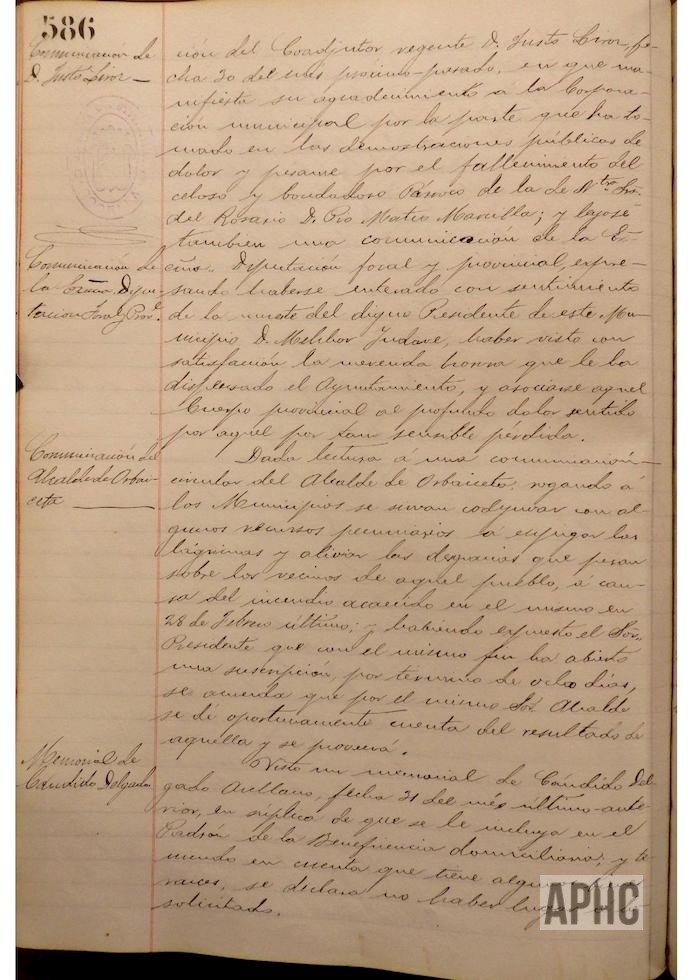 586
Comunicación de
D. Justo Liroz
ción del Coadjutor regente D. Justo Liroz, fe-
cha 30 del mes próximo-pasado, en que ma-
nifiesta su agradecimiento á la Corpora-
ción municipal por la parte que ha to-
mado en las demostraciones públicas de
dolor y pésame por el fallecimiento del
celoso y bondadoso Párroco de la de Ntra. Sra.
del Rosario D. Pio Mateo Marcilla; y leyose
también una comunicación de la Ex-
Comunicación de
la Excma. Dipu-
tación foral y Provl.
cma. Diputación foral y provincial, expre-
sando haberse enterado con sentimiento
de la muerte del digno Presidente de este Mu-
nicipio D. Melchor haber visto con
satisfacción la merecida honra que le ha
dispensado el Ayuntamiento, y asociarse aquel
Cuerpo provincial al profundo dolor sentido
por aquel por tan sensible pérdida.
Comunicación del
Alcalde de Orbai-
ceta
Dada lectura á una comunicación-
circular del Alcalde de Orbaiceta, rogando á
los Municipios se sirvan coadyuvar con al-
gunos recursos pecuniarios á enjugar las
lágrimas y aliviar las desgracias que pesan
sobre los vecinos de aquel pueblo, á cau-
sa del incendio acaecido en el mismo en
28 de Febrero último; y habiendo expuesto el Sor.
Presidente que con el mismo fin ha abierto
una suscripción, por término de ocho días,
se acuerda que por el mismo Sor. Alcalde
se dé oportunamente cuenta del resultado de
aquella y se proveerá.
Memorial de
Cándido Delgado
Visto un memorial de Cándido Del-
gado Arellano, fecha 31 del més último-ante-
rior, en súplica de que se le incluya en el
Padrón de la Beneficencia domiciliaria; y te-
niendo en cuenta que tiene algunos bienes
raices, se declara no haber lugar á lo
solicitado.
APHC